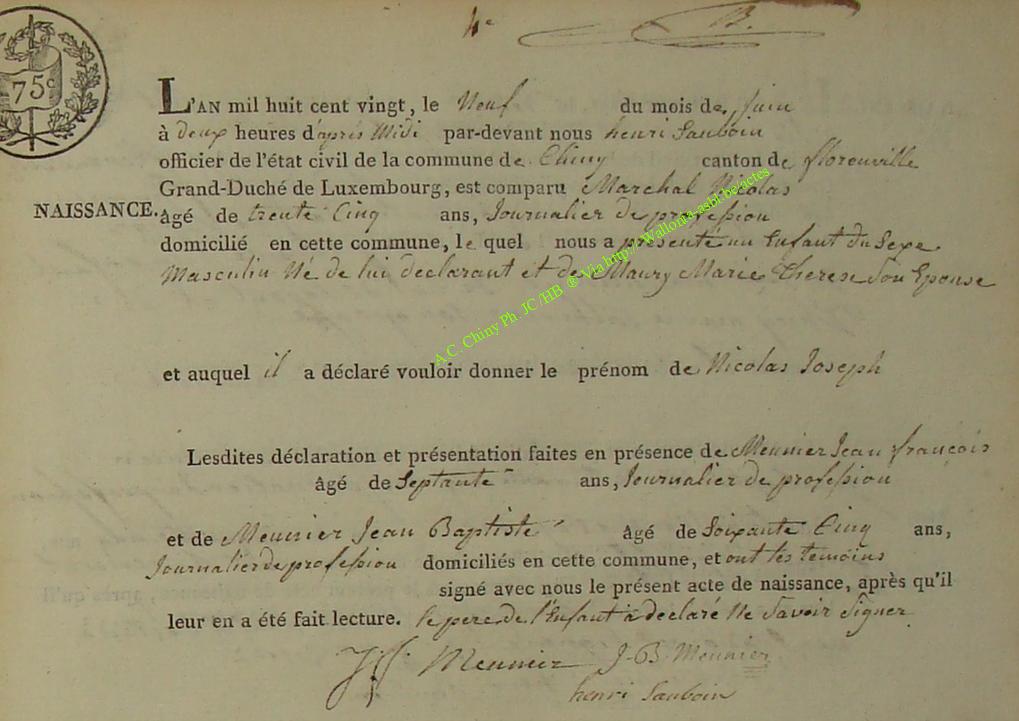 4e B.
75c
L'AN mil huit cent vingt, le Neuf du mois de Juin
à deux heures d'après Midi par-devant nous henri Sauboin
officier de l'état civil de la commune de Chiny canton de florenville
Grand-Duché de Luxembourg, est comparu Marchal Nicolas
NAISSANCE. âgé de trente Cinq ans, Journalier de profession
domicilié en cette commune, le quel nous a présenté un Enfant du Sexe
Masculin Né de lui declarant et de Maury Marie Therese Son Epouse
et auquel il a déclaré vouloir donner le prénom de Nicolas Joseph
Lesdites déclaration et présentation faites en présence de Meunier Jean françois
âgé de Septante ans, Journalier de profession
et de Meunier Jean Baptiste âgé de Soixante Cinq ans,
Journalier de profession domiciliés en cette commune, et ont les temoins
signé avec nous le présent acte de naissance, après qu'il
leur en a été fait lecture. le pere de l'Enfant a declaré Ne Savoir Signer
Meunier J-B Meunier
henri Sauboin
A.C. Chiny Ph. JC /HB ® Via http://Wallonia-asbl.be/actes